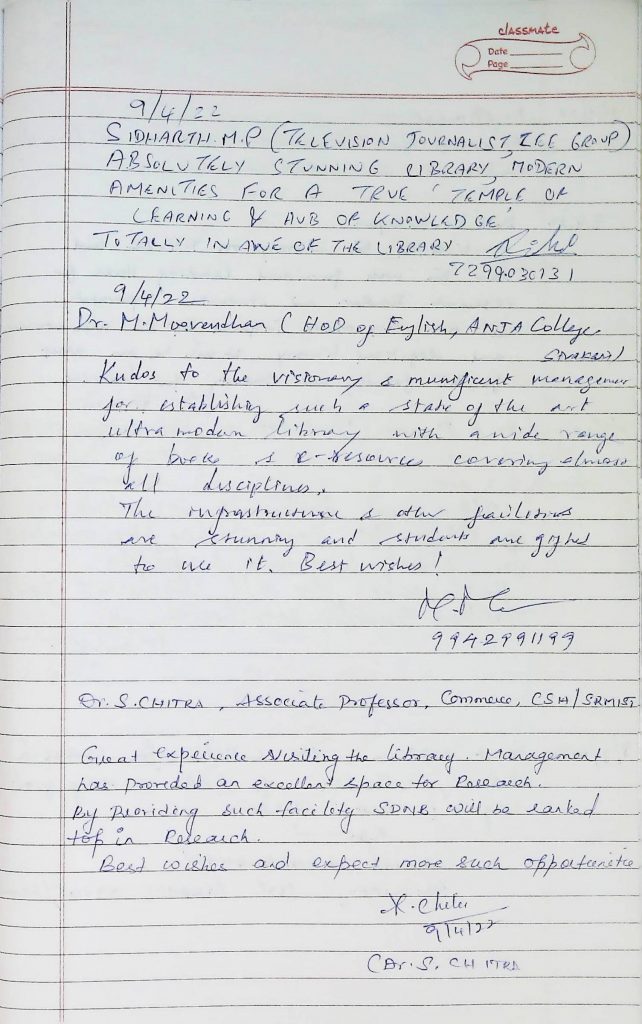 classmate
Date
Page
9/4/22
SIDHARTH.M.P (TELEVISION JOURNALIST, ZEE GROUP)
ABSOLUTELY STUNNING LIBRARY, MODERN
AMENITIES FOR A TRUE 'TEMPLE OF
LEARNING & HUB OF KNOWLEDGE'
TOTALLY IN AWE OF THE LIBRARY
7299030131
9/4/22
Dr. M. Moovendhan (HOD of English, ANJA College,
Sivakasi)
Kudos to the visionary & munificent management
for establishing such a state of the art
ultra modern library with a wide range
of books & e-resources covering almost
all disciplines.
The infrastructure & other facilities
are stunning and students are gifted
to use it. Best wishes!
9942991199
Dr. S. CHITRA, Associate Professor, Commerce, CSH/SRMIST
Great experience visiting the library. Management
has provided an excellent space for Research.
By providing such facility SDNB will be ranked
top in Research.
Best wishes and expect more such opportunities
S. Chitra
9/4/22
(Dr. S. CHITRA